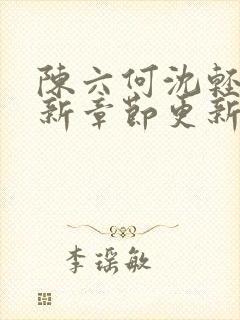 陳六何沈輕
新章節更新
李瑤敏